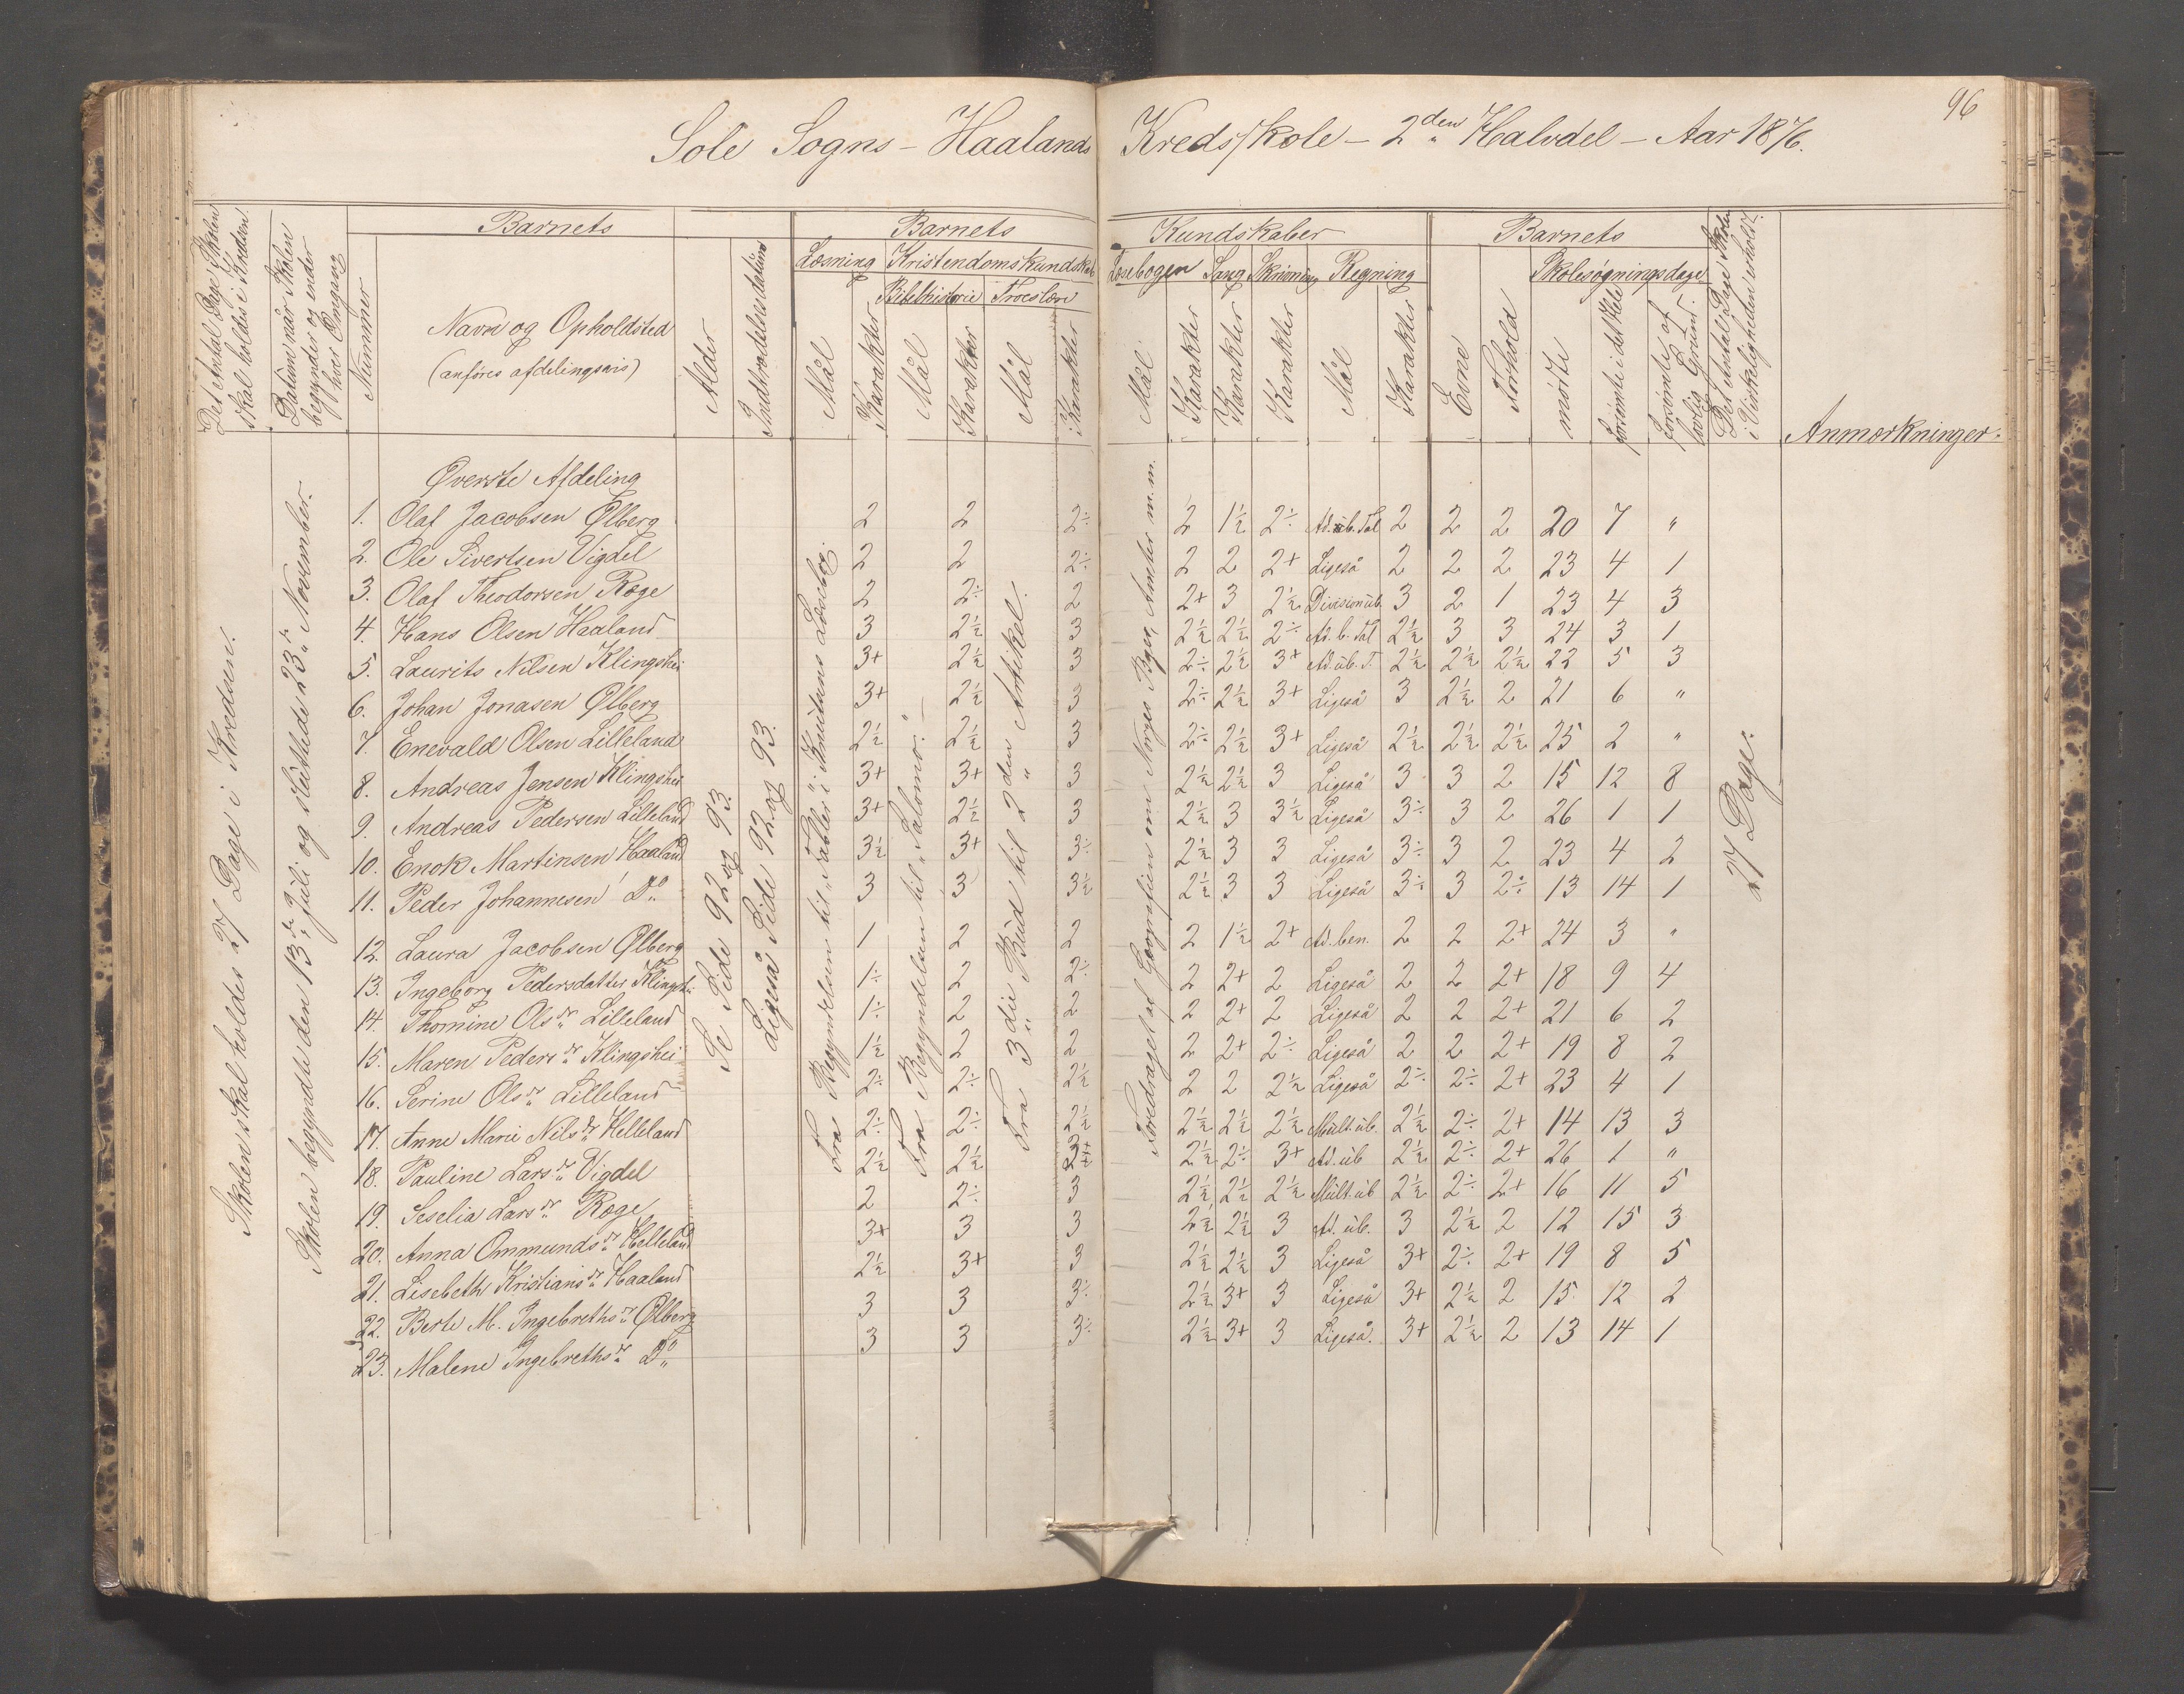 96
Sole Sogns – Haalands Kredsskole – 2den Halvdel – Aar 1876.
Det Antal Dage Skolen skal holdes i Kredsen.
Datum når Skolen begynder og ender hver Omgang
Nummer
Barnets
Navn og Opholdsted
(anføres afdelingsvis)
Alder
Indtrædelsesdatum
Barnets Kundskaber
Læsning
Mål
Karakter
Kristendomskundskab
Bibelhistorie
Mål
Karakter
Troeslære
Mål
Karakter
Læsebogen
Mål
Karakter
Sang
Karakter
Skrivning
Karakter
Regning
Mål
Karakter
Barnets
Evne
Forhold
Skolesøgningsdage
mødte
forsømte i det Hele
forsømte af lovlig Grund.
Det Antal Dage Skolen i Virkeligheden er holdt.
Anmærkninger.
Skolen skal holdes 27 Dage i Kredsen.
Skolen begyndte den 13de Juli og sluttede 23de November.
Se Side 92 og 93.
Ligeså Side 92 og 93.
Fra Begyndelsen til „Fabler" i Knutsens Læsebog.
Fra Begyndelsen til „Salomo".
Fra 3die Bud til 2den Artikel.
Foredraget af Geografien om Norges Byer, Amter m.m.
27 Dage.
Øverste Afdeling
1. Olaf Jacobsen Ølberg 2 2 2÷ 2 1½ 2÷ Ad. ub. Tal 2 2 2 20 7 "
2. Ole Sivertsen Vigdel 2 2 2÷ 2 2 2+ Ligeså 2 2 2 23 4 1
3. Olaf Theodorsen Roge 2 2÷ 2 2+ 3 2½ Division ub. 3 2 1 23 4 3
4. Hans Olsen Haaland 3 2½ 3 2½ 2½ 2÷ Ad. b. Tal 2½ 3 3 24 3 1
5. Laurits Nilsen Klingshei 3+ 2½ 3 2÷ 2½ 3+ Ad. ub. T. 2½ 2½ 2½ 22 5 3
6. Johan Jonasen Ølberg 3+ 2½ 3 2÷ 2½ 3+ Ligeså 3 2½ 2 21 6 "
7. Enevald Olsen Lilleland 2½ 2½ 3 2÷ 2½ 3+ Ligeså 2½ 2½ 2½ 25 2 "
8. Andreas Jensen Klingshei 3+ 3+ 3 2½ 2½ 3 Ligeså 3 3 2 15 12 8
9. Andreas Pedersen Lilleland 3+ 2½ 3 2½ 3 3½ Ligeså 3÷ 3 2 26 1 1
10. Enok Martinsen Haaland 3½ 3+ 3÷ 2½ 3 3 Ligeså 3÷ 3 2 23 4 2
11. Peder Johannesen Do 3 3 3½ 2½ 3 3 Ligeså 3÷ 3 2÷ 13 14 1
12. Laura Jacobsen Ølberg 1 2 2 2 1½ 2+ Ad. ben. 2 2 2+ 24 3 "
13. Ingeborg Pedersdatter Klingshei 1÷ 2 2÷ 2 2+ 2 Ligeså 2 2 2+ 18 9 4
14. Thomine Olsdr Lilleland 1÷ 2 2 2 2+ 2 Ligeså 2 2 2+ 21 6 2
15. Maren Pedersdr Klingshei 1½ 2 2 2 2+ 2÷ Ligeså 2 2 2+ 19 8 2
16. Serine Olsdr Lilleland 2÷ 2÷ 2½ 2 2 2½ Ligeså 2÷ 2÷ 2+ 23 4 1
17. Anne Marie Nilsdr Helleland 2÷ 2÷ 2½ 2½ 2½ 2½ Mult. ub. 2½ 2÷ 2+ 14 13 3
18. Pauline Larsdr Vigdel 2½ 2½ 2½ 2÷ 3+ Ad. ub 2½ 2÷ 2+ 26 1 "
19. Seselia Larsdr Roge 2 2÷ 3 2½ 2½ 2½ Mult. ub 2½ 2÷ 2+ 16 11 5
20. Anna Ommundsdr Helleland 3+ 3 3 2½ 2½ 3 Ad. ub. 3 2½ 2 12 15 3
21. Lisebeth Kristiansdr Haaland 2½ 3+ 3 2½ 2½ 3 Ligeså 3+ 2÷ 2+ 19 8 5
22. Berte M. Ingebrethsdr Ølberg 3 3 3÷ 2½ 3+ 3 Ligeså 3+ 2½ 2 15 12 2
23. Malene Ingebrethsdr Do 3 3 3÷ 2½ 3+ 3 Ligeså. 3+ 2½ 2 13 14 1